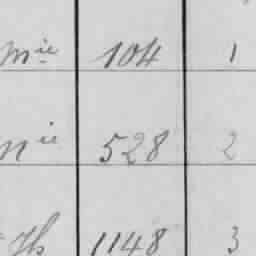 mie 104 1
nie 528 2
Th 1148 3